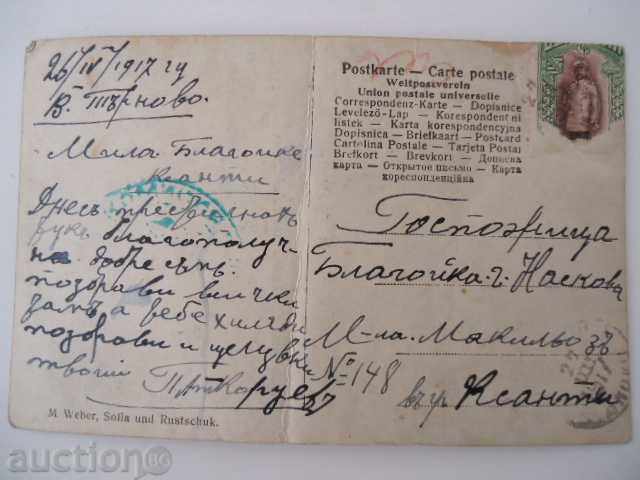 26/IV 1917 гу
В. Търново.
Мила Благойке
Ксанти
Днесъ пристигнахъ
тукъ благополуч-
но добре съмъ.
поздрави всички
а тебе хиляди
поздрави и целувки
твоий
M. Weber, Sofia und Rustschuk.
Postkarte — Carte postale
Weltpostverein
Union postale universelle
Correspondenz-Karte — Dopisnice
Levelező-Lap — Korespondent ní
listek — Karta korespondencyjna
Dopisnica — Briefkaart — Postcard
Cartolina Postale — Tarjeta Postal
Brefkort — Brevkort — Дописна
карта — Открытое письмо — Карта
кореспонденційна
Госпожица
Благойка г. Наскова
М-ла
№ 148
въ гр. Ксанти
auction BG